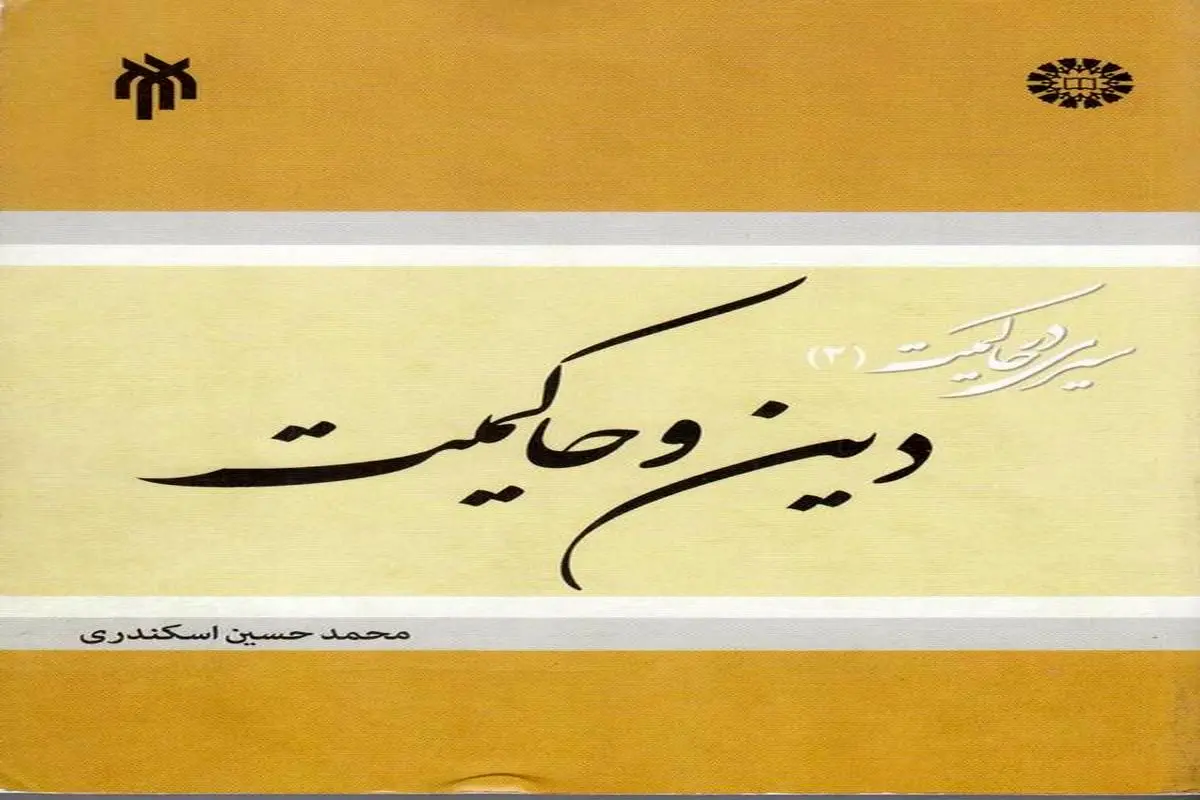 سیری در حاکمیت (۲)
دین و حاکمیت
محمد حسین اسکندری